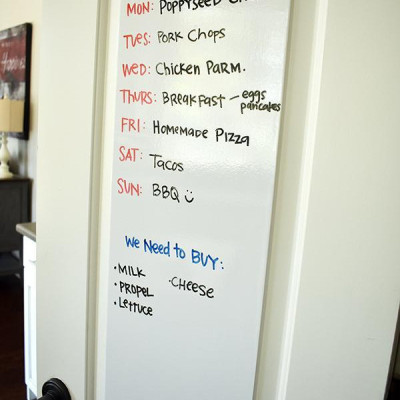 MON: POPPYSEED
TUES: PORK CHOPS
WED: CHICKEN PARM.
THURS: BREAKFAST — eggs
pancakes
FRI: HOMEMADE PIZZA
SAT: TACOS
SUN: BBQ
We Need to BUY:
• MILK
• PROPEL
• LETTUCE
• CHEESE